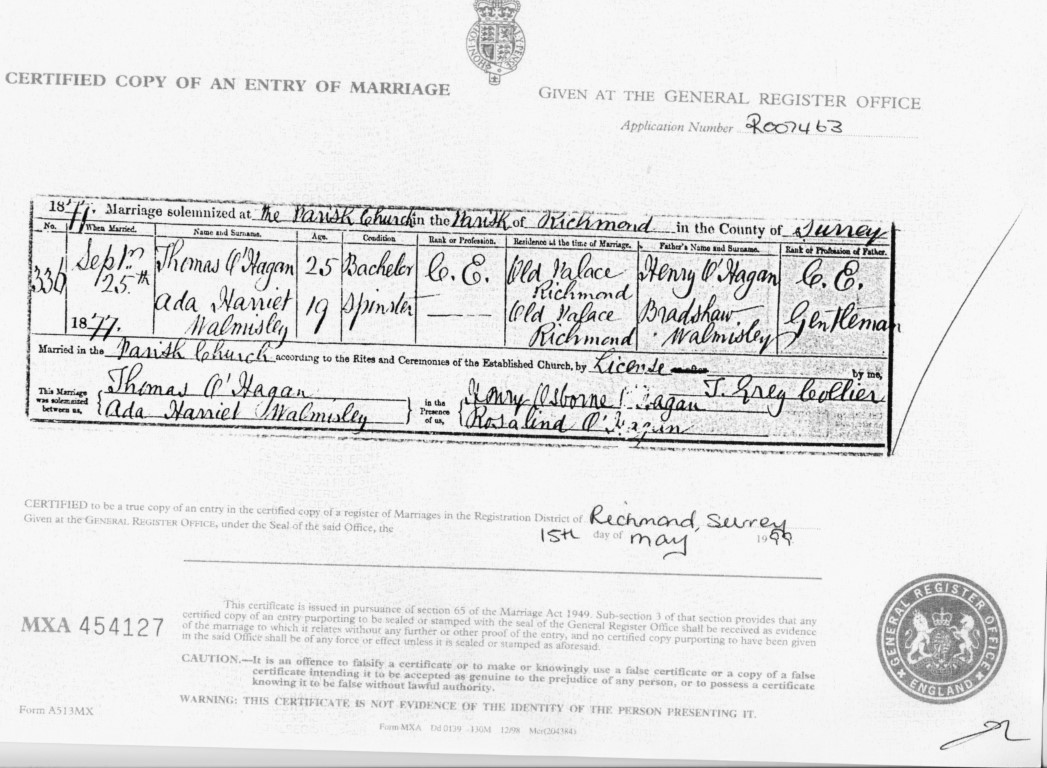 CERTIFIED COPY OF AN ENTRY OF MARRIAGE
GIVEN AT THE GENERAL REGISTER OFFICE
Application Number R007463
1877. Marriage solemnized at the Parish Church in the Parish of Richmond in the County of Surrey
No. When Married. Name and Surname. Age. Condition Rank or Profession. Residence at the time of Marriage. Father's Name and Surname. Rank or Profession of Father.
336 Septr 25th 1877. Thomas O'Hagan 25 Bachelor C. E. Old Palace Richmond Henry O'Hagan C. E.
Ada Harriet Walmisley 19 Spinster —— Old Palace Richmond Bradshaw Walmisley Gentleman
Married in the Parish Church according to the Rites and Ceremonies of the Established Church, by License by me,
J. Grey Collier
This Marriage was solemnized between us, Thomas O'Hagan
Ada Harriet Walmisley
in the Presence of us, Henry Osborne O'Hagan
Rosalind O'Hagan
CERTIFIED to be a true copy of an entry in the certified copy of a register of Marriages in the Registration District of Richmond, Surrey
Given at the GENERAL REGISTER OFFICE, under the Seal of the said Office, the 15th day of May 1999
MXA 454127
This certificate is issued in pursuance of section 65 of the Marriage Act 1949. Sub-section 3 of that section provides that any
certified copy of an entry purporting to be sealed or stamped with the seal of the General Register Office shall be received as evidence
of the marriage to which it relates without any further or other proof of the entry, and no certified copy purporting to have been given
in the said Office shall be of any force or effect unless it is sealed or stamped as aforesaid.
CAUTION.—It is an offence to falsify a certificate or to make or knowingly use a false certificate or a copy of a false
certificate intending it to be accepted as genuine to the prejudice of any person, or to possess a certificate
knowing it to be false without lawful authority.
WARNING: THIS CERTIFICATE IS NOT EVIDENCE OF THE IDENTITY OF THE PERSON PRESENTING IT.
GENERAL REGISTER OFFICE
ENGLAND
Form A513MX
Form MXA Dd 0139 130M 12/98 Mcr(204384)